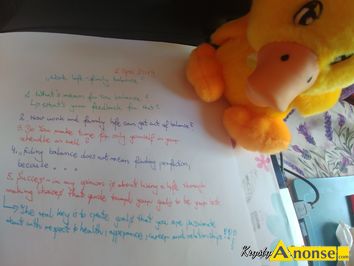 "Work life - family balance"
1. What's mean for You balance?
↳ What's your feedback for this?
2. How work and family life can get out of balance?
3. Do You make time for only yourself in your
as well?
4. Finding balance does not mean finding perfection,
because ...
5. Success - in my opinion is about living a life through
making choices that guide through your goals to be
↳ The real key is to create goals that you are passionate
about with respect to health, and relationships
Krysty
Anonse.com